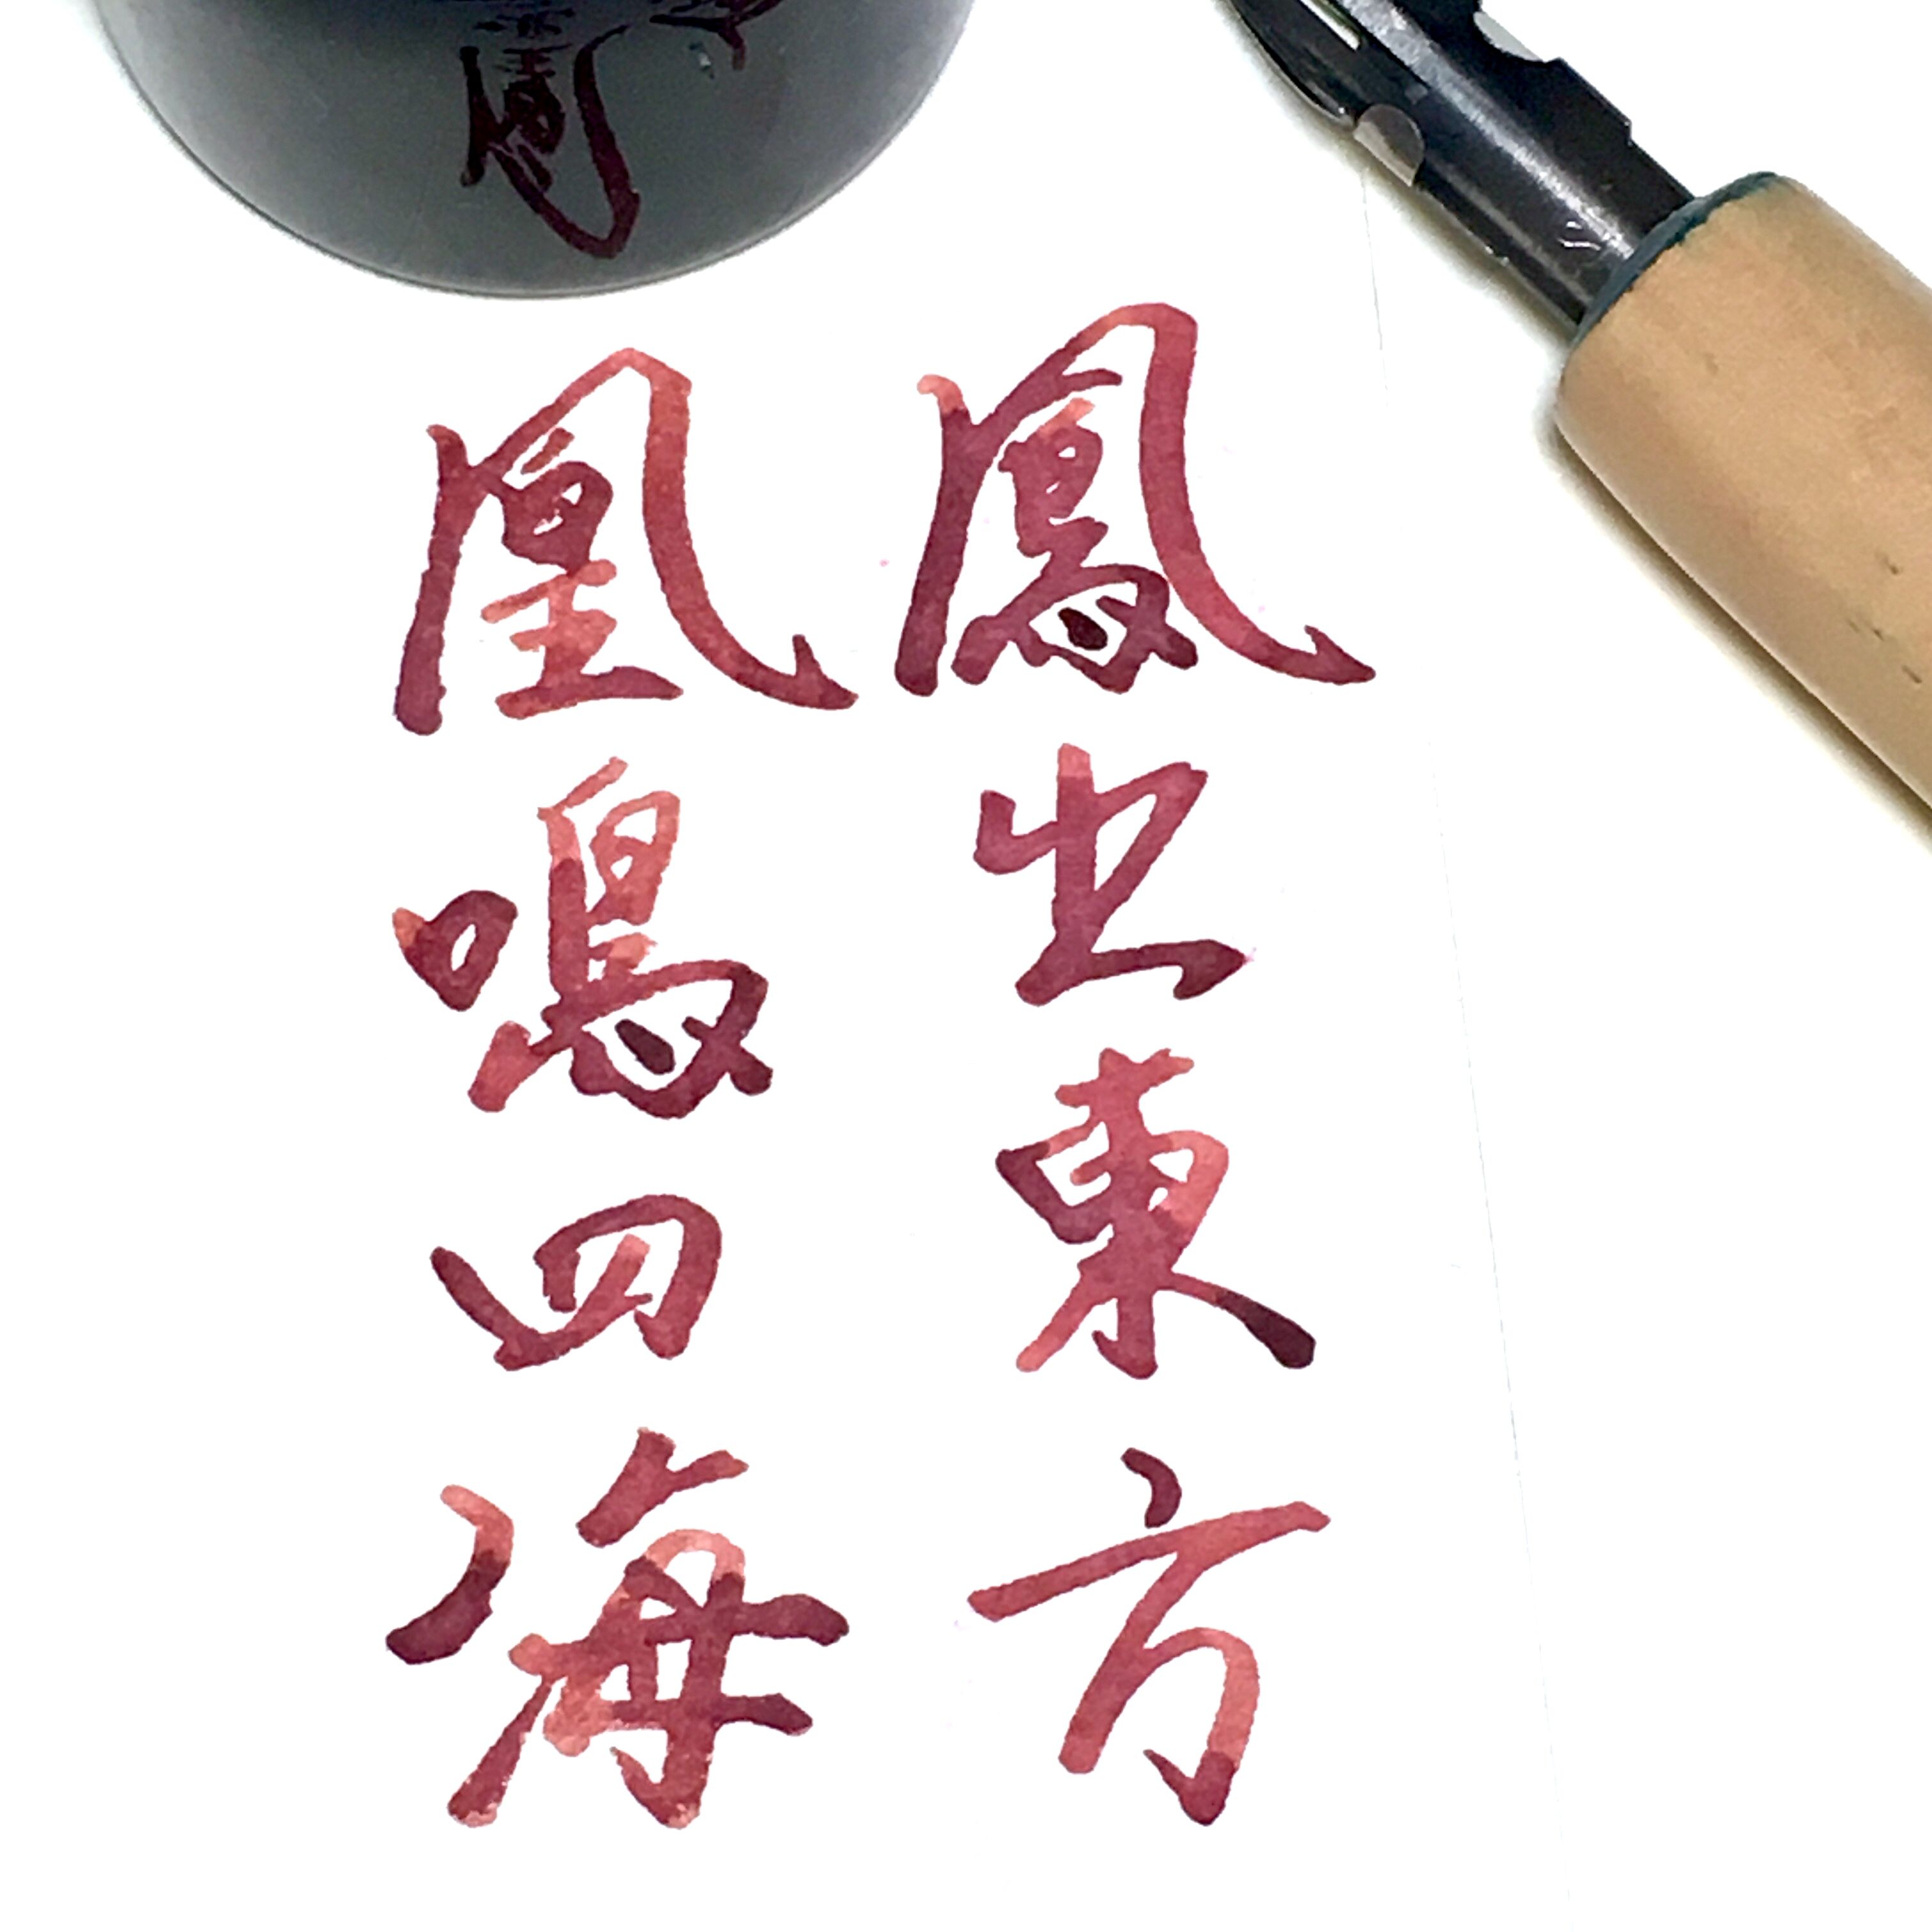 鳳出東方
凰鳴四海